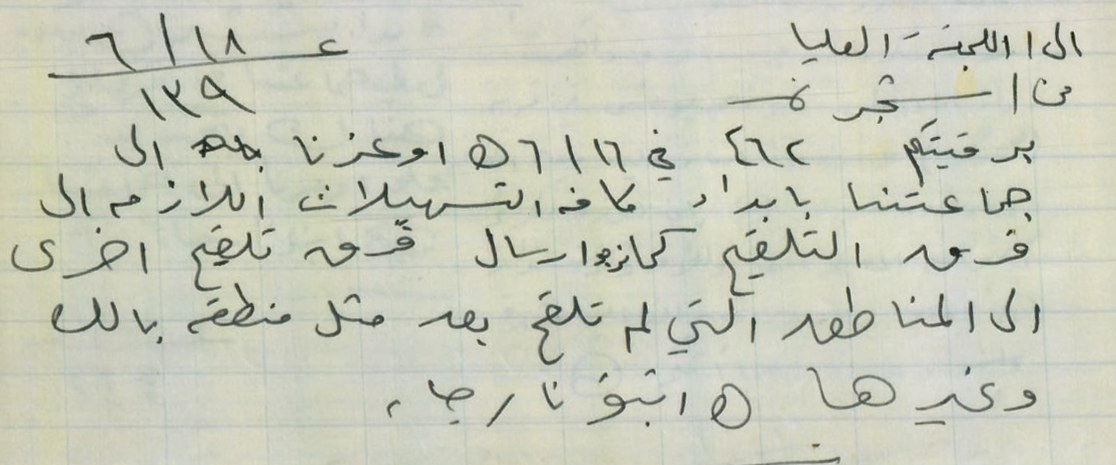 الى / اللجنة العليا
ع ١٨/٦
من / شجرة
١٣٩
برقيتكم ٤٦٢ في ٦/١٦ ٥ اوعزنا الى
جماعتنا بابداء كافة التسهيلات اللازمة الى
فرق التلقيح كما نرجوا ارسال فرق تلقيح اخرى
الى المناطق التي لم تلقح بعد مثل منطقة بالك
وغيرها ٥ انبئونا رجاء